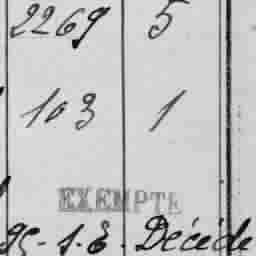 2269 5
103 1
EXEMPTE
Décéde